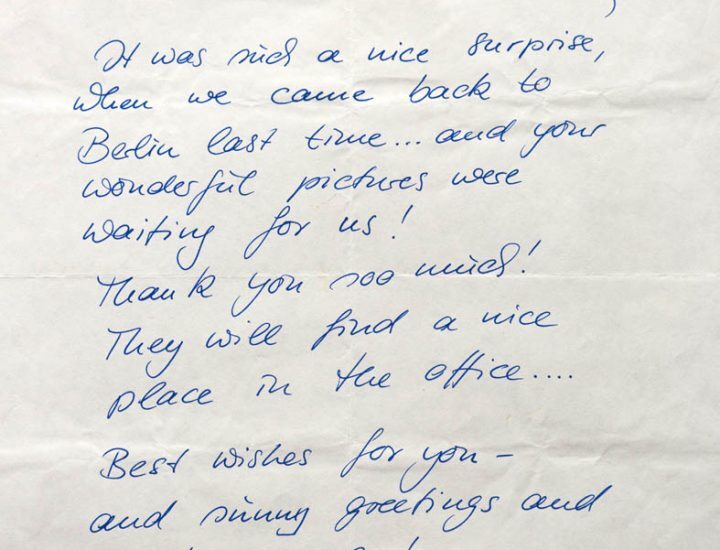 It was such a nice surprise,
when we came back to
Berlin last time... and your
wonderful pictures were
waiting for us!
Thank you soo much!
They will find a nice
place in the office....
Best wishes for you -
and sunny greetings and